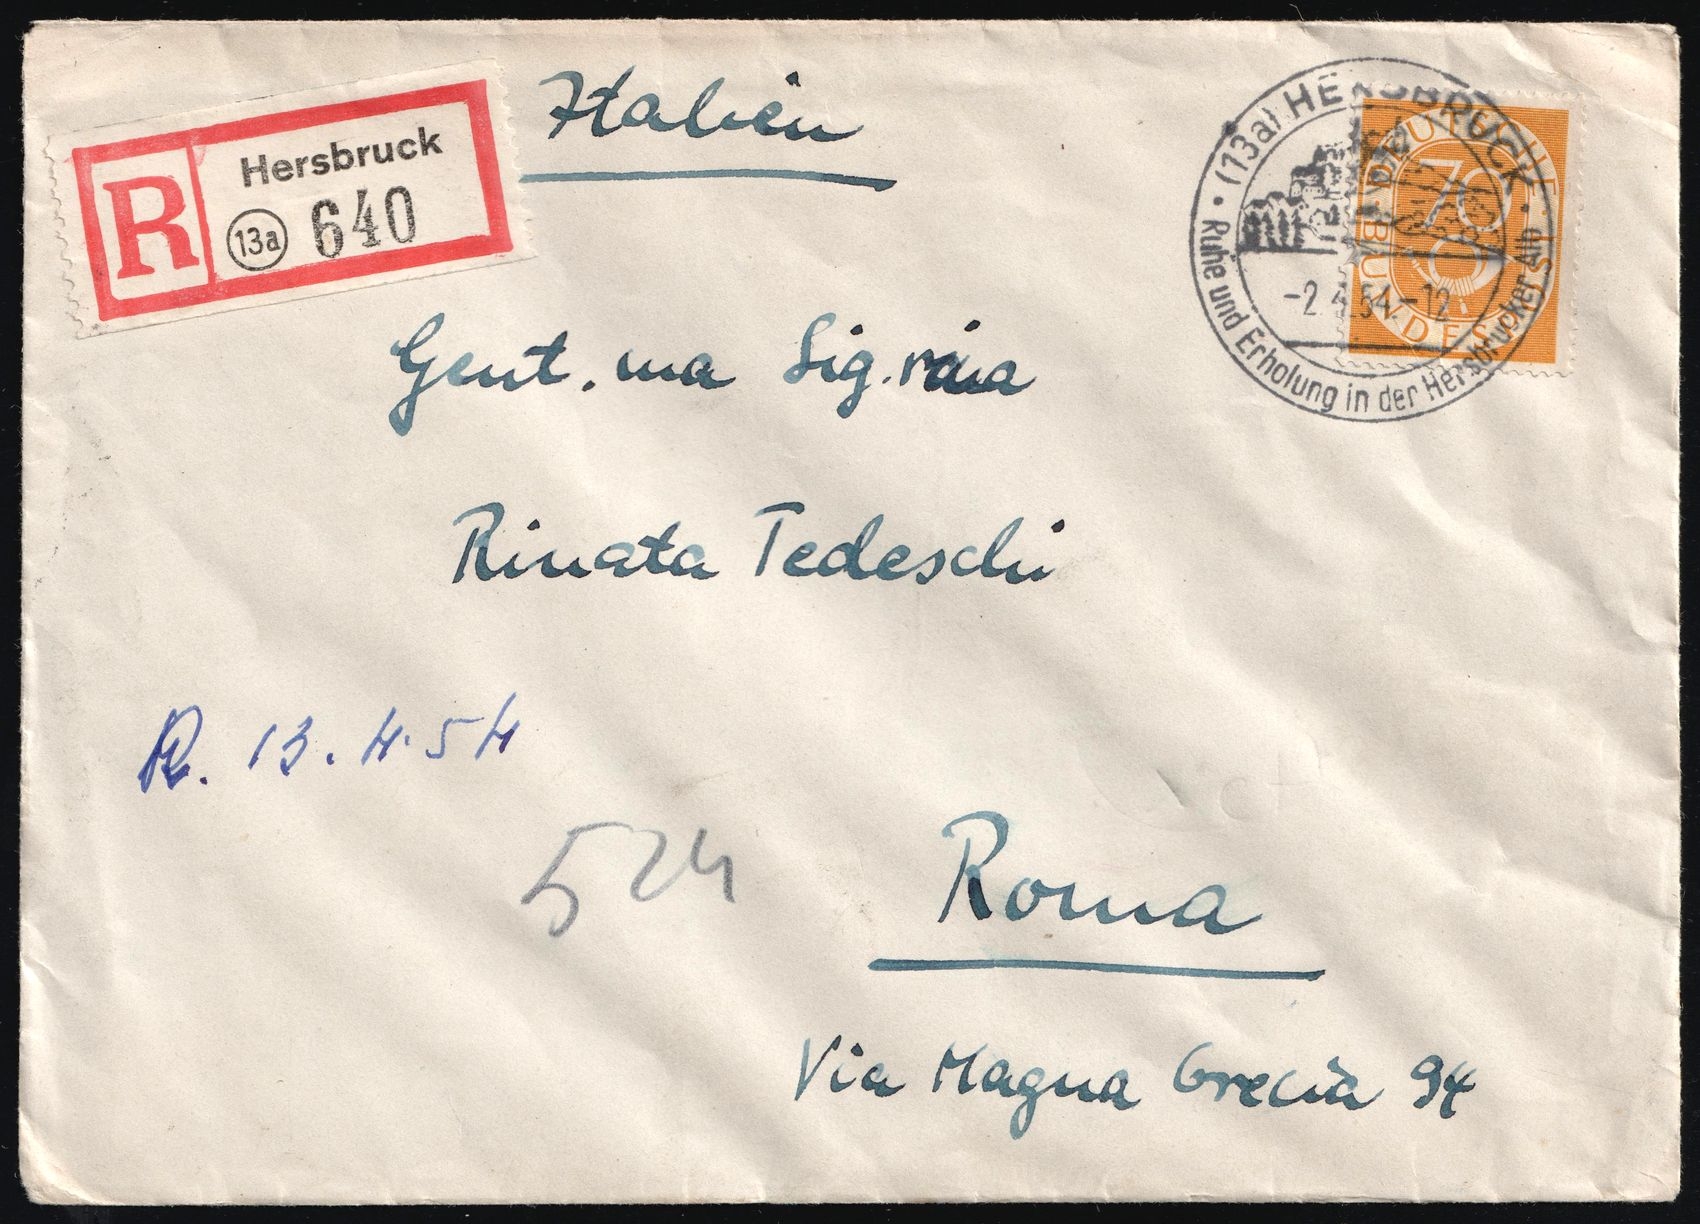 Italien
R
Hersbruck
13a 640
(13a) HERSBRUCK
-2.4.54.-12
Ruhe und Erholung in der Hersbrucker Alb
DEUTSCHE
70
BUNDESPOST
Gent.ma Sig.rina
Rinata Tedeschi
R. 13.4.54
524
Roma
Via Magna Grecia 94